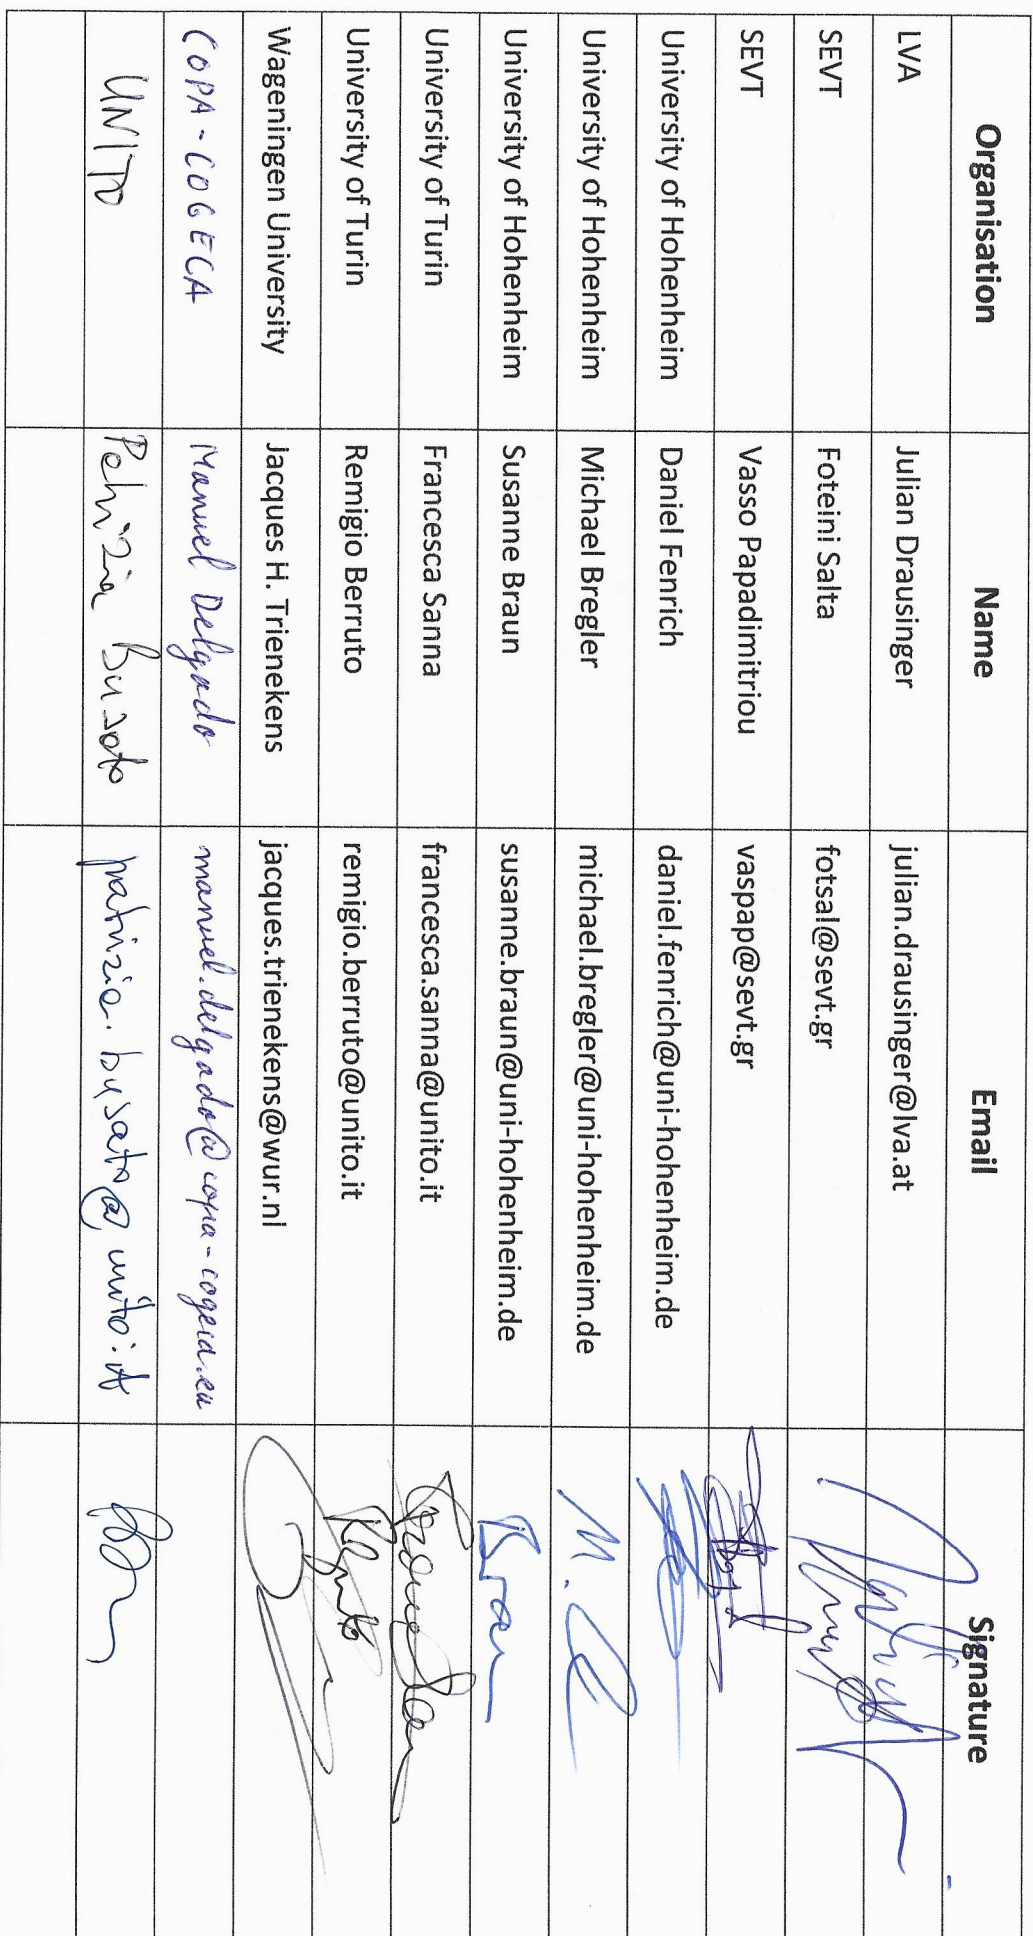 Organisation Name Email Signature
LVA Julian Drausinger julian.drausinger@lva.at
SEVT Foteini Salta fotsal@sevt.gr
SEVT Vasso Papadimitriou vaspap@sevt.gr
University of Hohenheim Daniel Fenrich daniel.fenrich@uni-hohenheim.de
University of Hohenheim Michael Bregler michael.bregler@uni-hohenheim.de
University of Hohenheim Susanne Braun susanne.braun@uni-hohenheim.de Braun
University of Turin Francesca Sanna francesca.sanna@unito.it
University of Turin Remigio Berruto remigio.berruto@unito.it
Wageningen University Jacques H. Trienekens jacques.trienekens@wur.nl
COPA-COGECA Manuel Delgado manuel.delgado@copa-cogeca.eu
UNITO Patrizia Busato patrizia.busato@unito.it